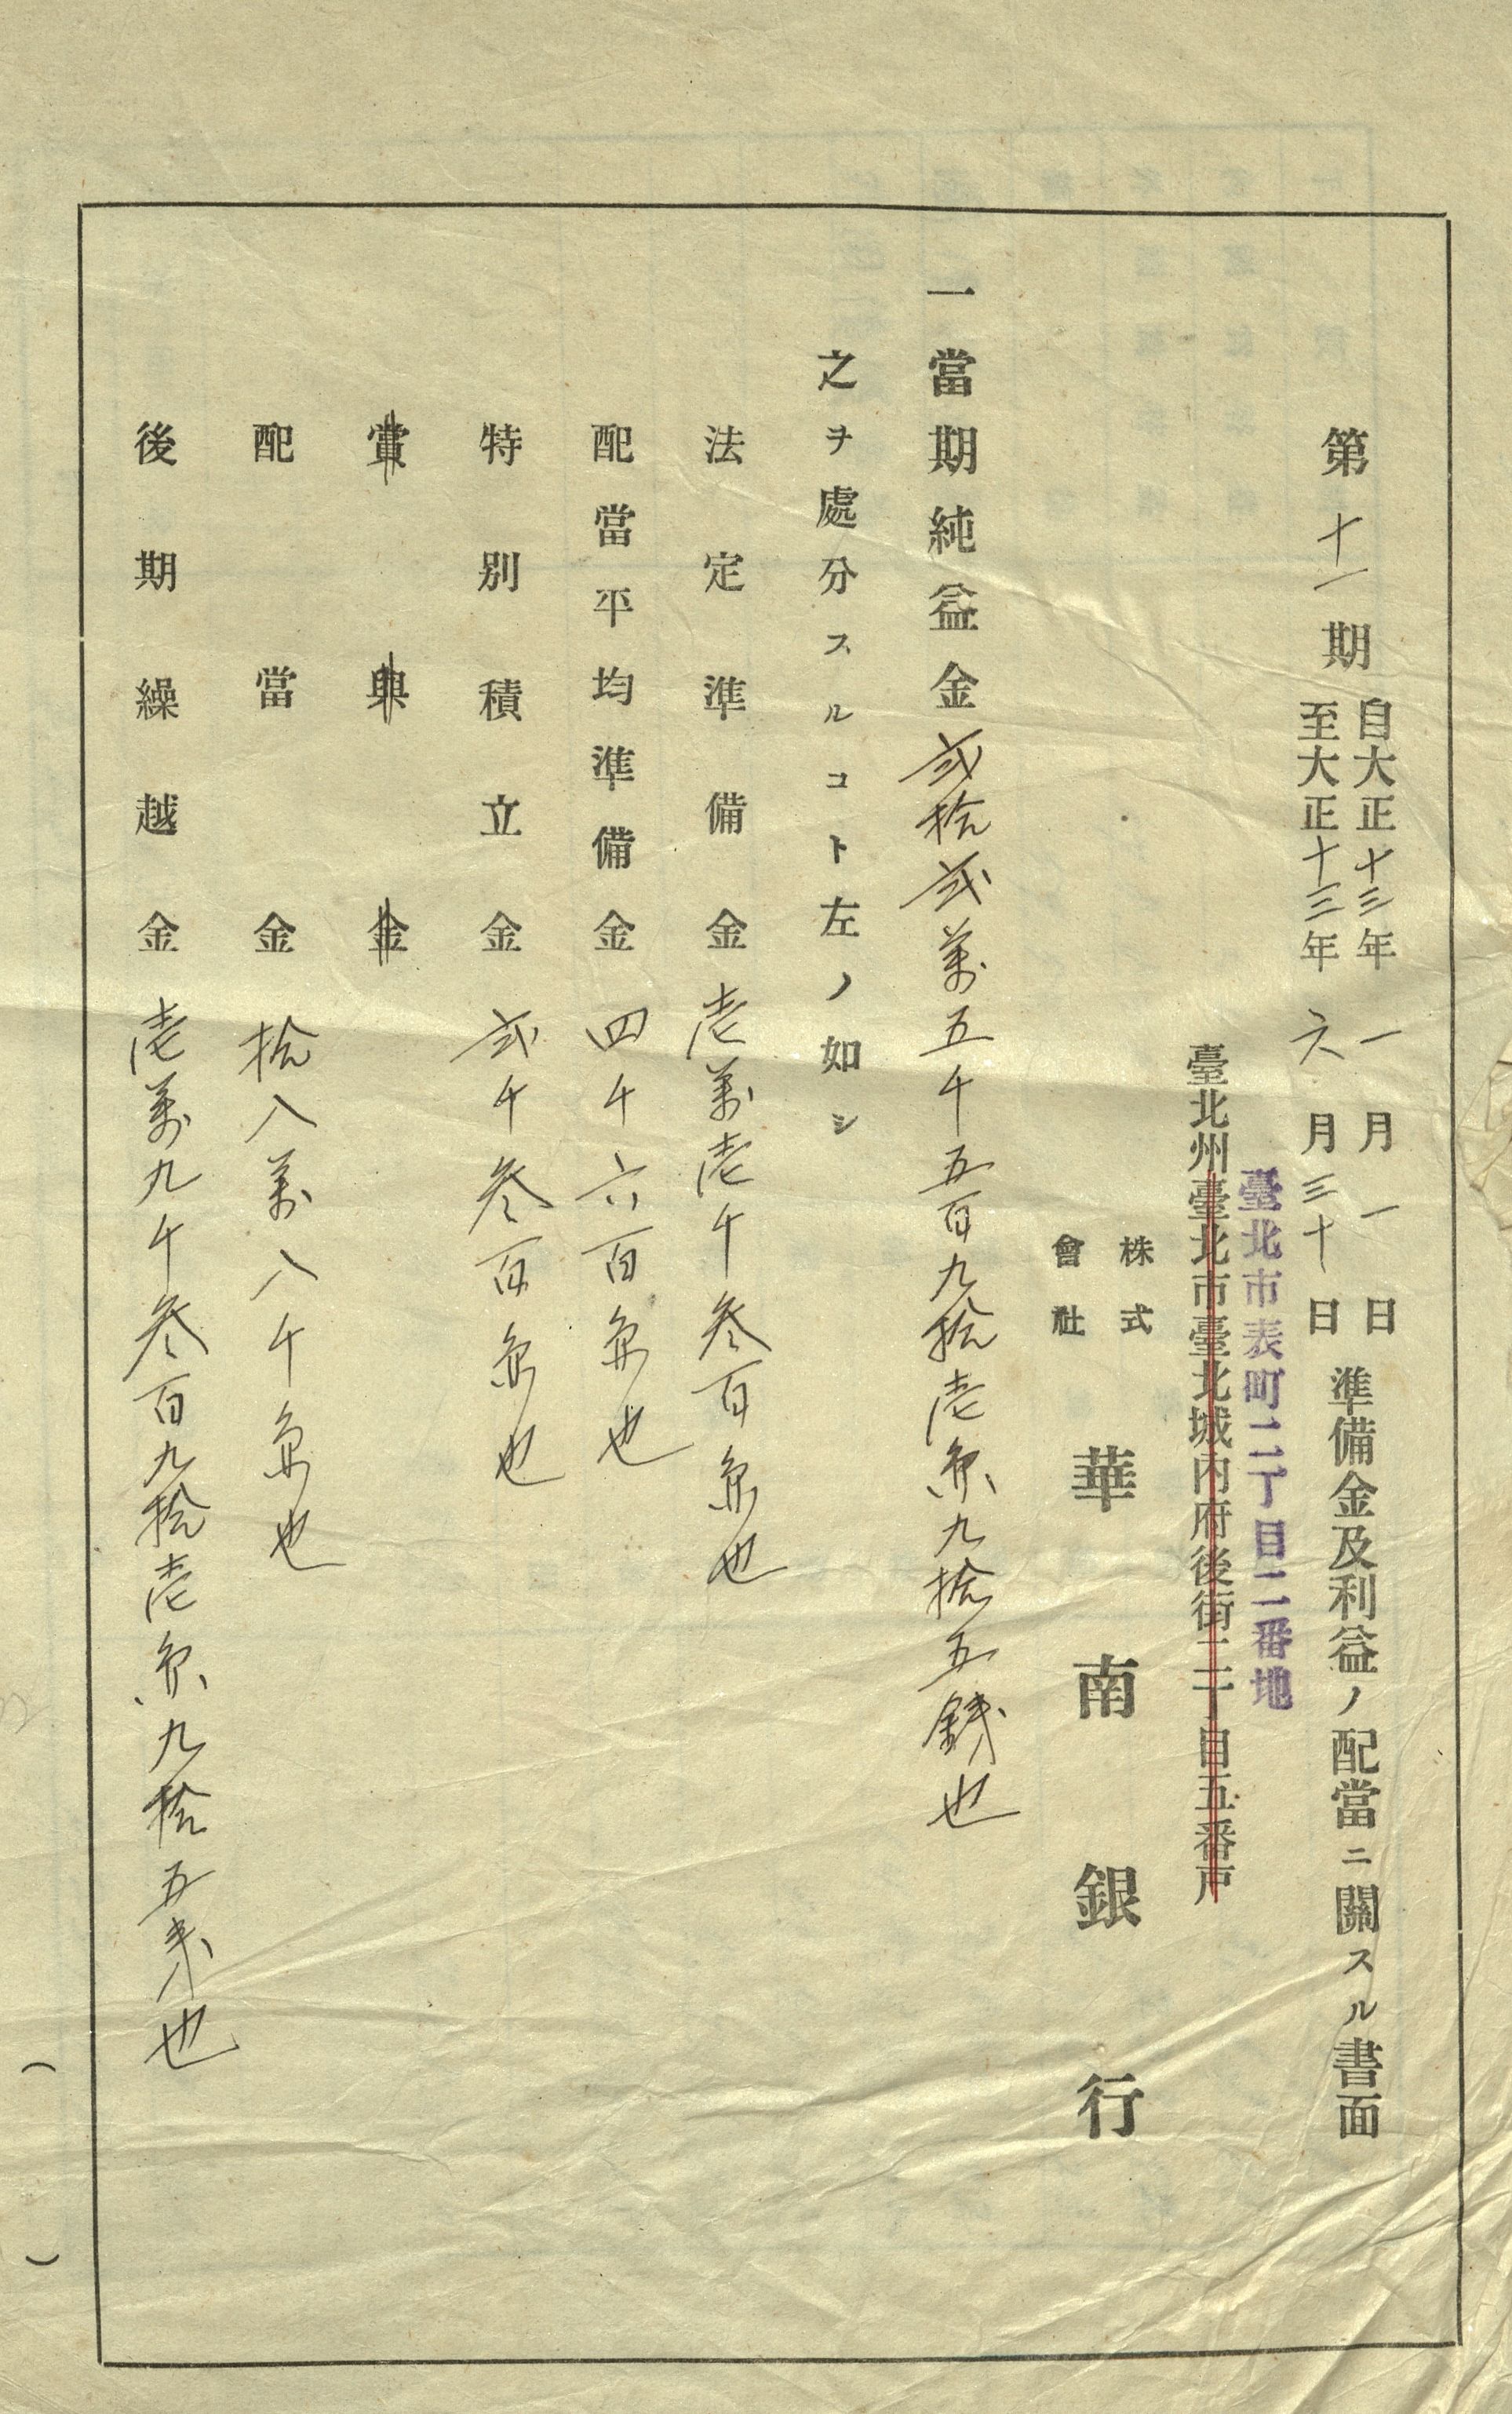 第十一期 自大正十三年一月一日 至大正十三年六月三十日 準備金及利益ノ配當ニ關スル書面
臺北市表町二丁目二番地
臺北州臺北市臺北城內府後街二丁目五番戶
株式會社 華南銀行
一當期純益金貳拾貳萬五千五百九拾壱圓九拾五錢也
之ヲ處分スルコト左ノ如シ
法定準備金壱萬壱千參百圓也
配當平均準備金四千六百圓也
特別積立金貳千參百圓也
賞與金
配當金拾八萬八千圓也
後期繰越金壱萬九千參百九拾壱圓九拾五錢也